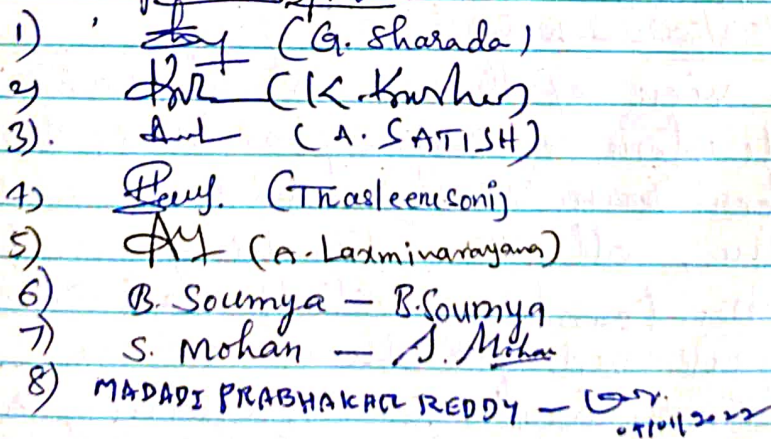 1) (G. Sharada)
2) (K.
3). (A. SATISH)
4) (Thasleem soni)
5) (A. Laxminarayana)
6) B. Soumya — B. Soumya
7) S. Mohan — S. Mohan
8) MADADI PRABHAKAR REDDY —